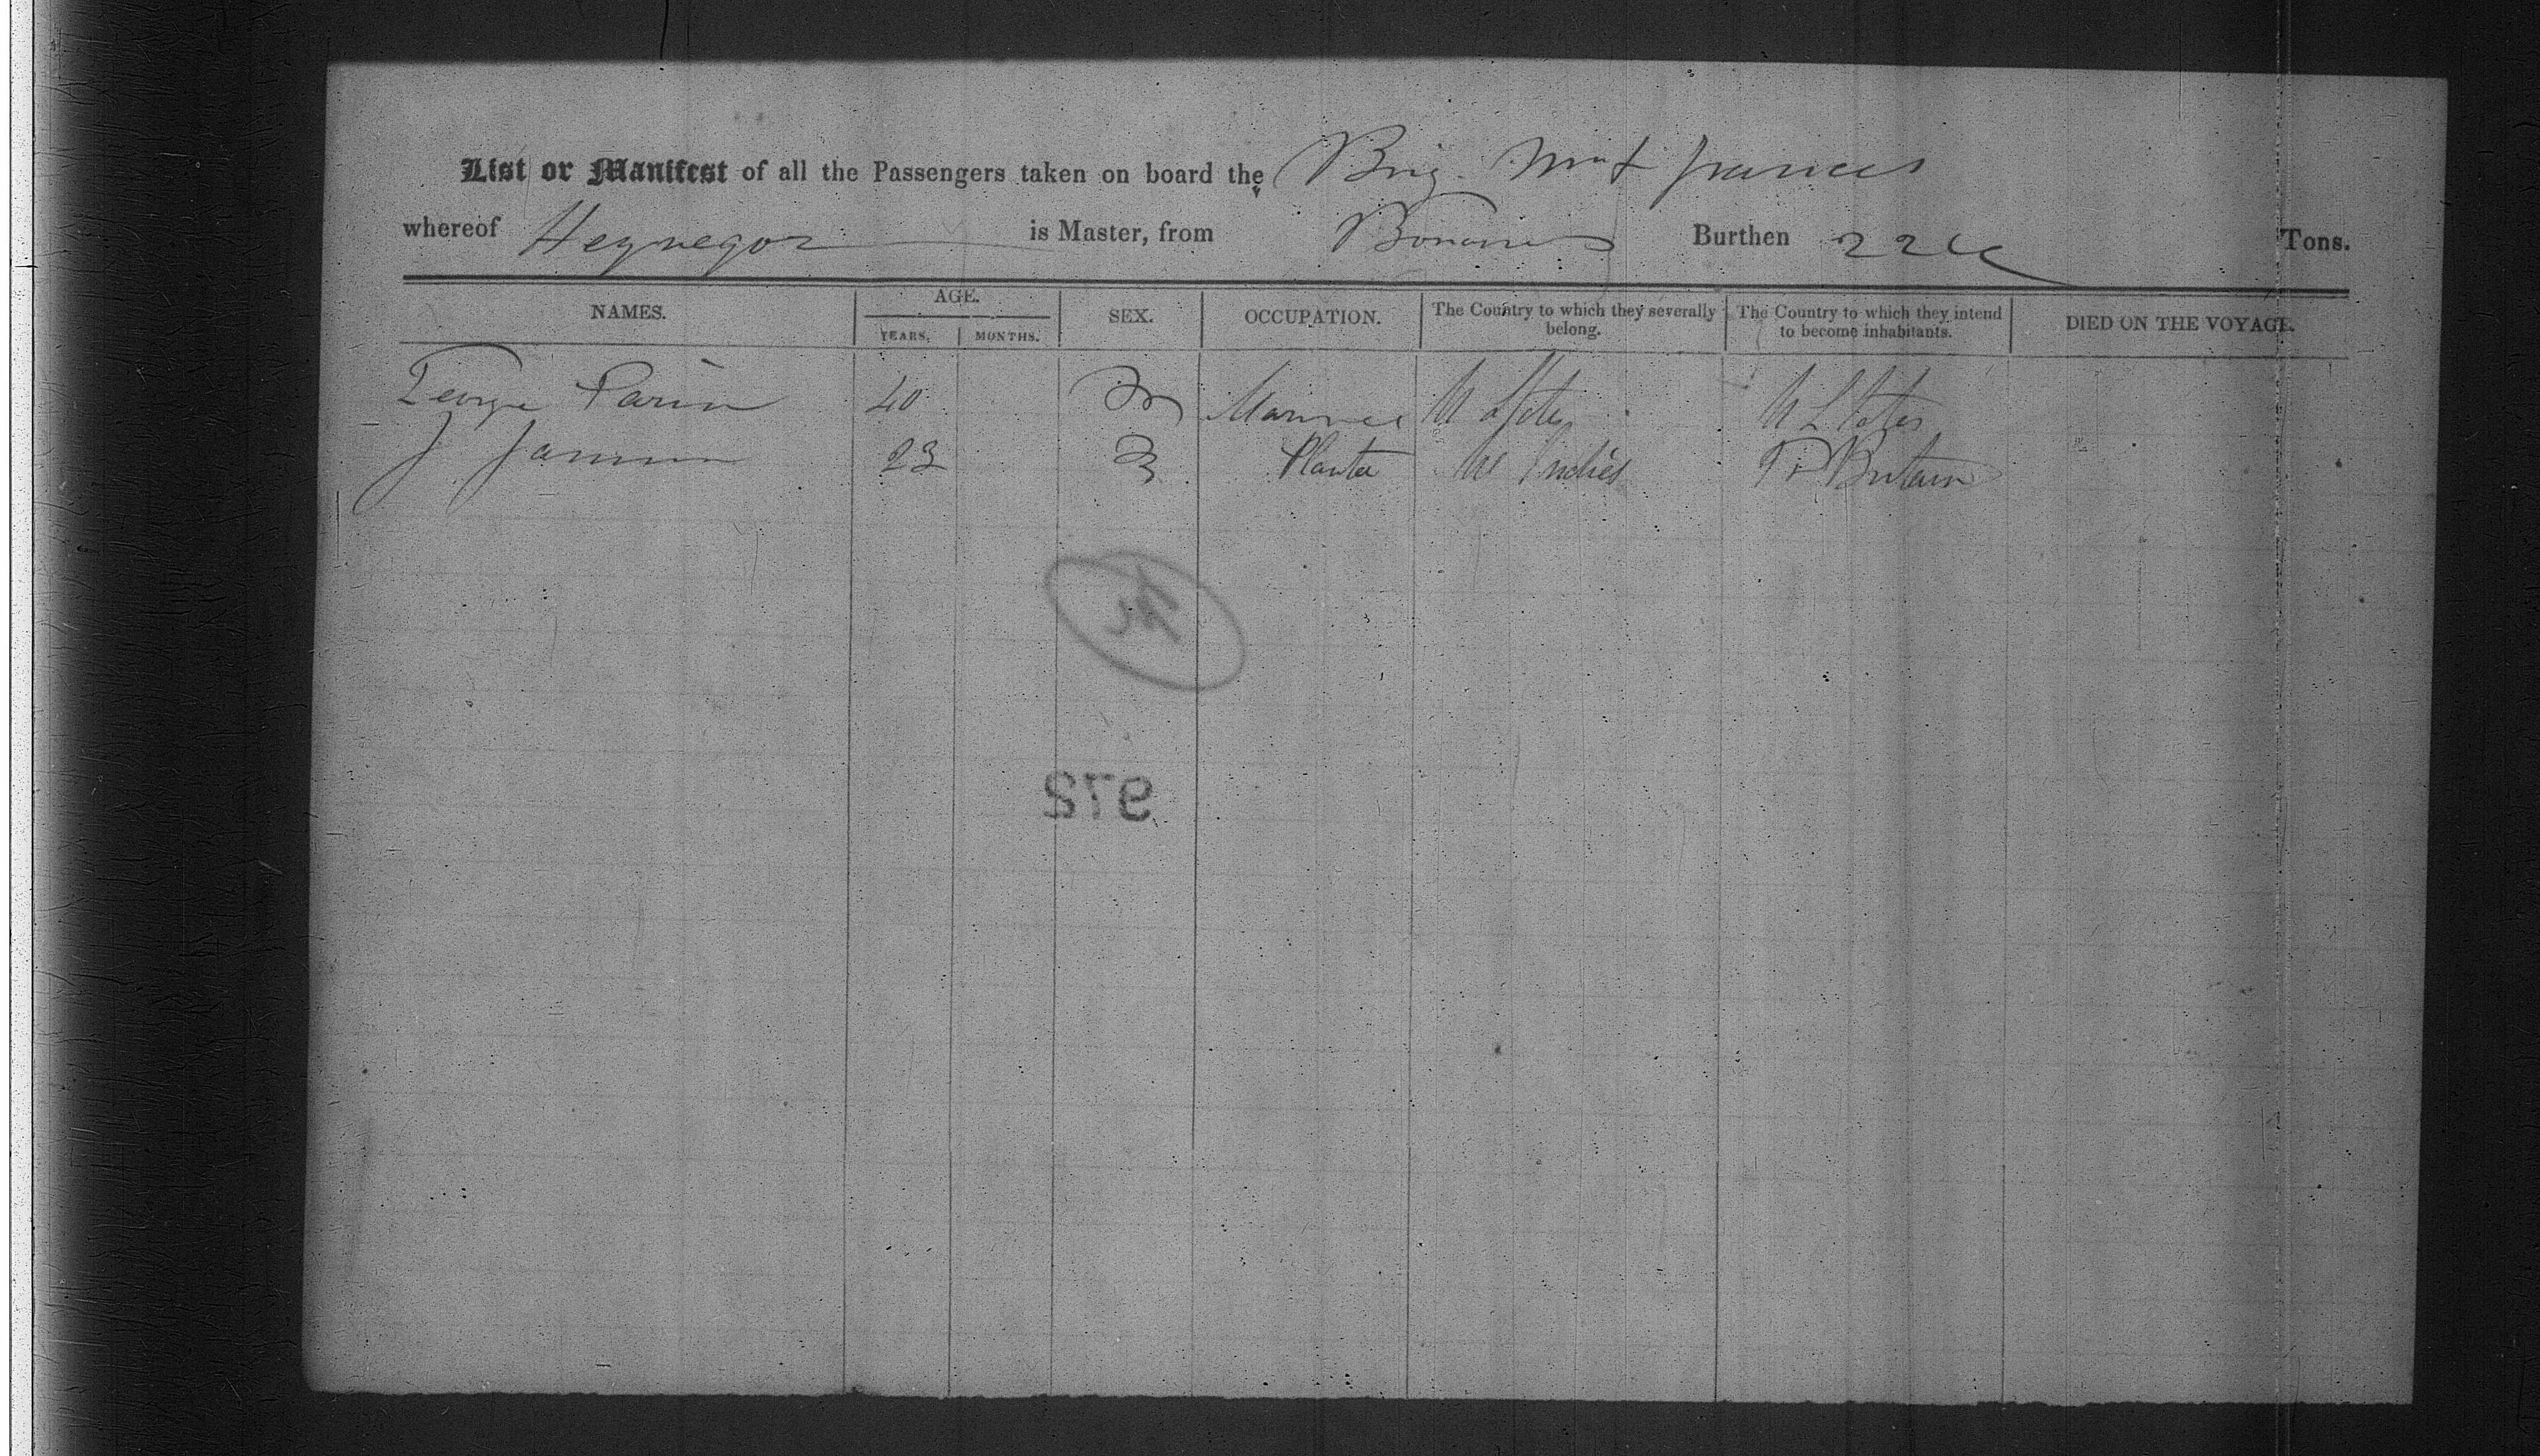 List or Manifest of all the Passengers taken on board the Brig Wm & Frances
whereof is Master, from Bonaire Burthen 224 Tons.
NAMES. AGE. SEX. OCCUPATION. The Country to which they severally belong. The Country to which they intend to become inhabitants. DIED ON THE VOYAGE.
YEARS. MONTHS.
George 40 M Mariner U States U States
J 23 M Planter W Indies Gr Britain
972